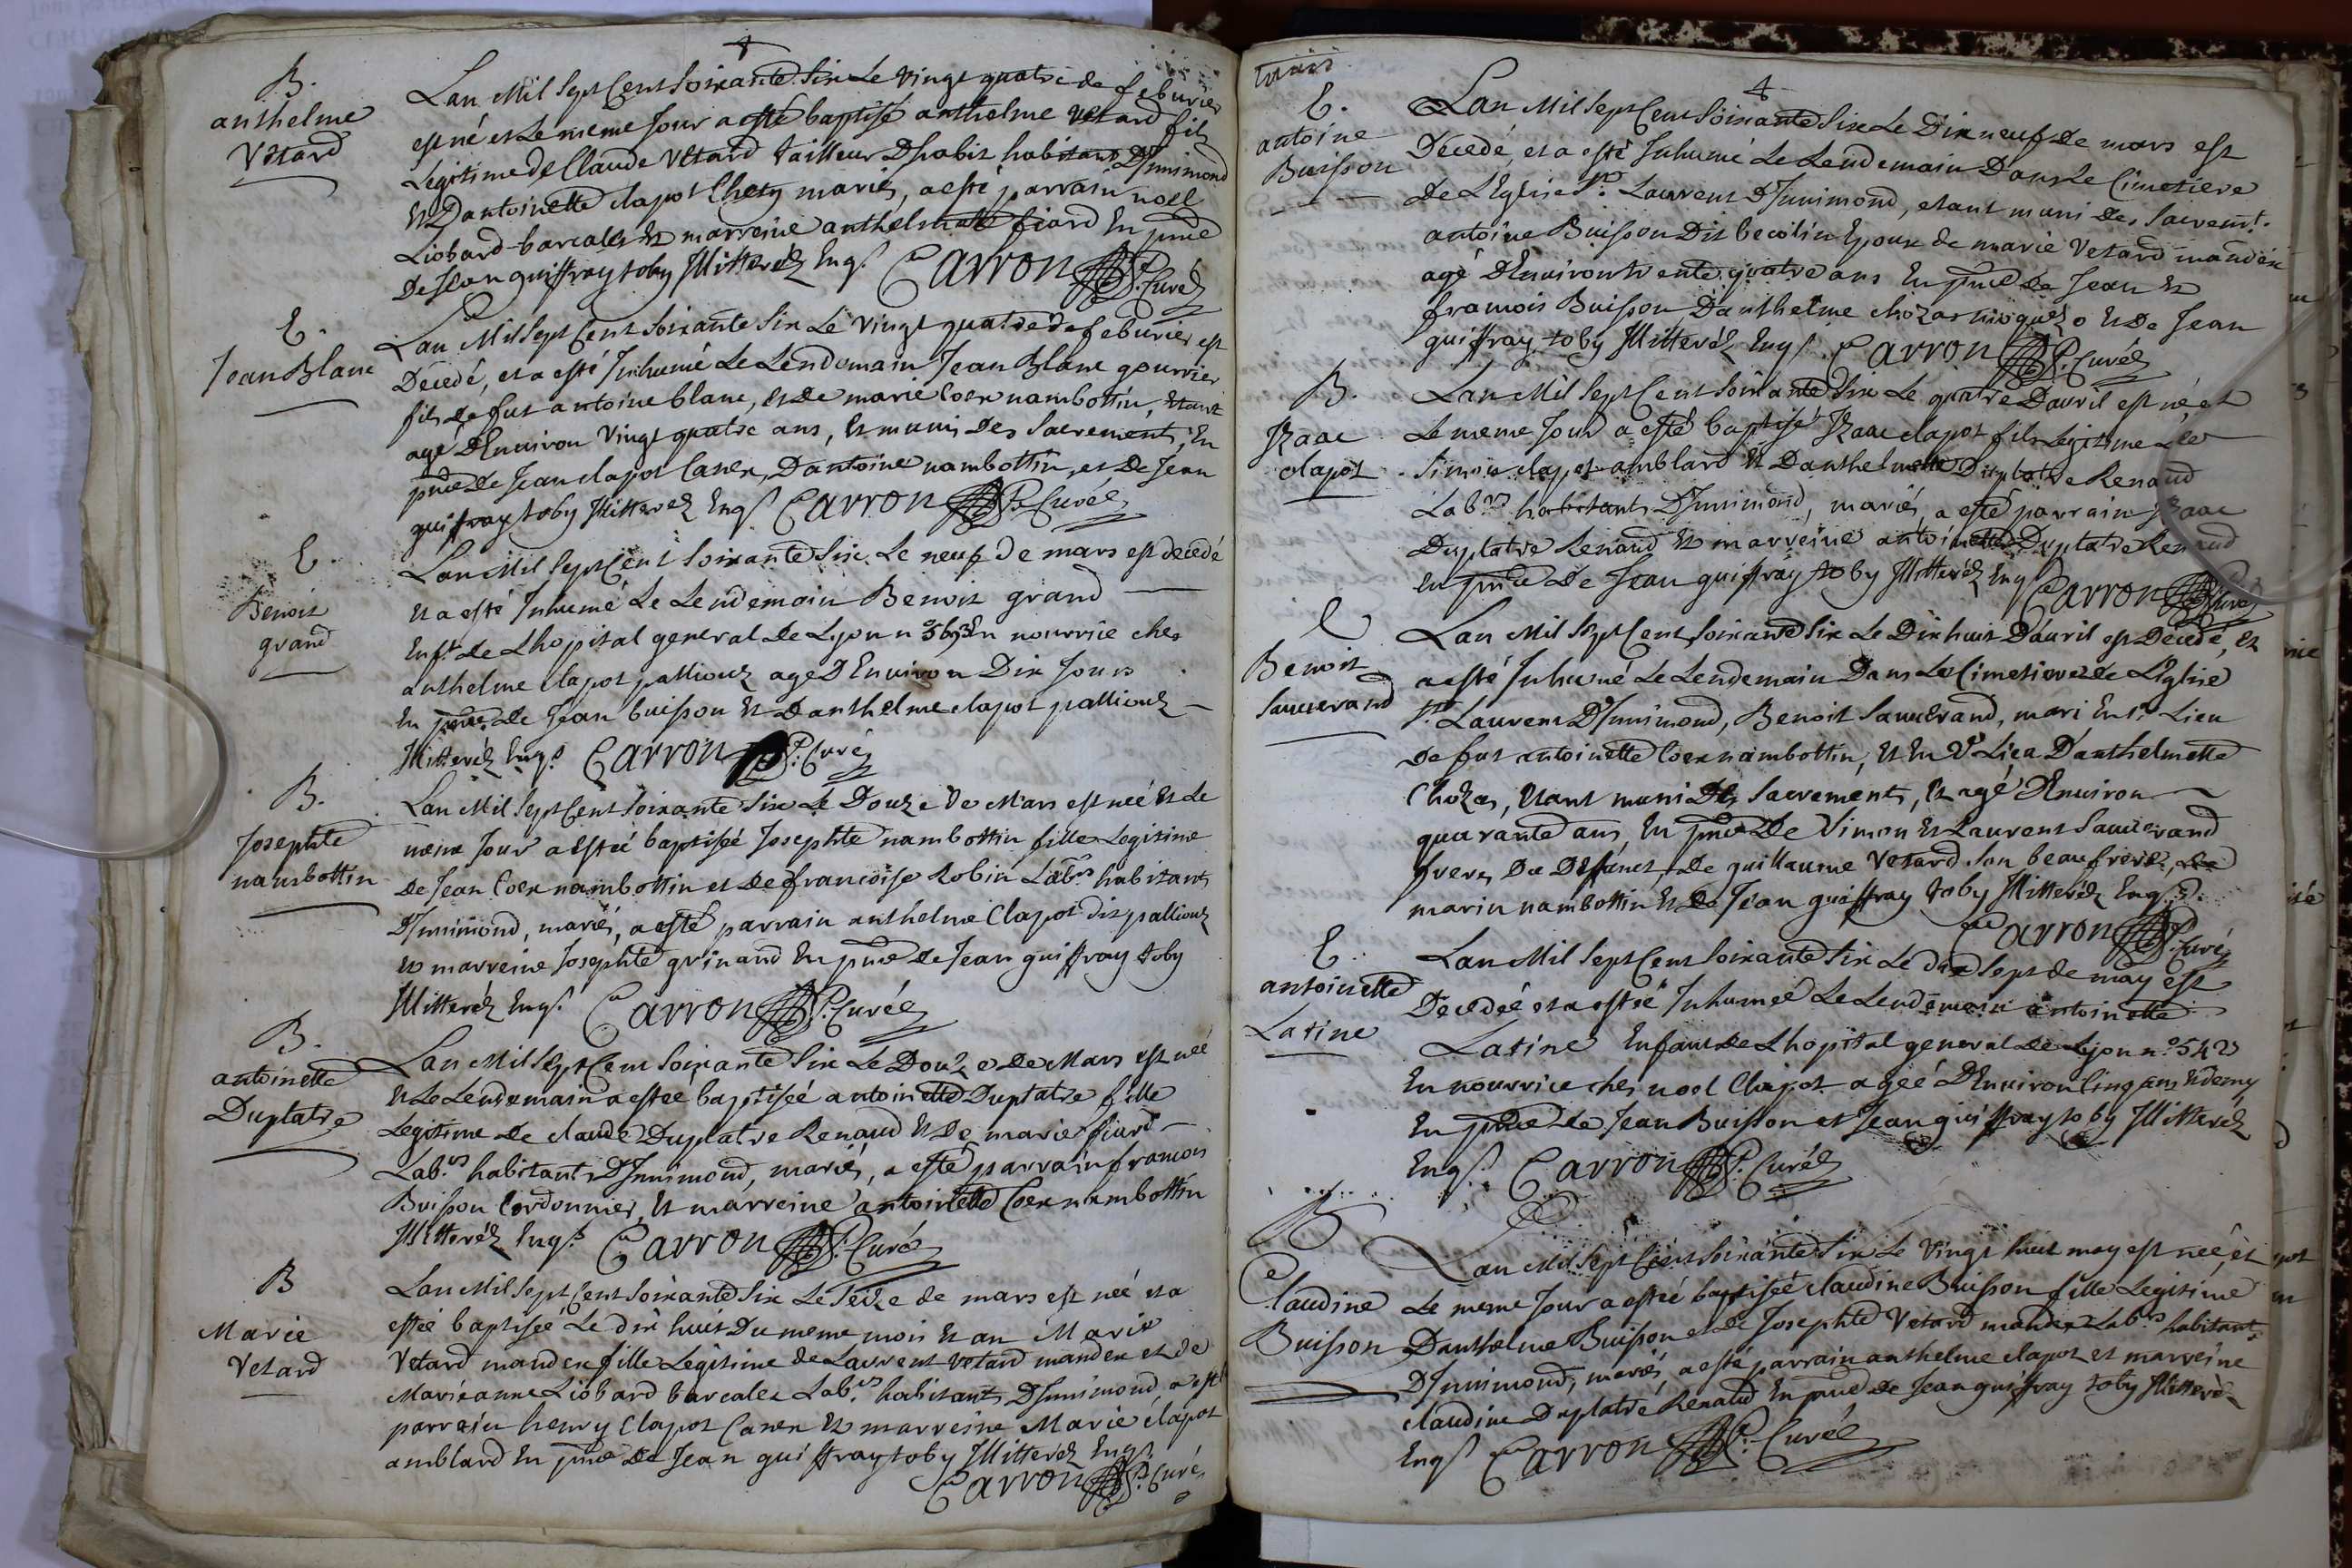 B.
anthelme
Vétard
Lan Mil Sept Cent Soixante Six Le Vingt quatre de feburier
est né et Le meme Jour a esté baptisé anthelme Vetard fils
Legitime de Claude Vetard tailleur Dhabit habitant D'Innimond
Et D'antoinette clapot Chery mariés, a esté parrain noel
Liobard barcalet Et marreine anthelmette fiard En pnce
De Jean guiffray toby Illitterés Enqs. Carron P. Curé
E.
Jean Blanc
Lan Mil Sept Cent Soixante Six Le Vingt quatre de feburier est
Décedé, et a esté Inhumé Le Lendemain Jean Blanc gourrier
fils de fut antoine blanc, et De marie Coex nambottin, Etant
agé D'Environ Vingt quatre ans, Et munis Des Sacrements, En
pnce de Jean clapot Canex, D'antoine nambottin, et De Jean
guiffray toby Illitteréz Enqs. Carron P. Curé
E.
Benoit
grand
Lan Mil Sept Cent Soixante Six Le neuf de mars est decedé
Et a esté Inhumé Le Lendemain Benoit grand
Enft. de Lhopital general de Lyon n° En nourrice ches
anthelme clapot palliouz agé D'Environ Dix Jours
En pnce de Jean buisson Et D'anthelme clapot palliouz
Illitteréz Enqs. Carron P. Curé
B.
Josephte
nambottin
Lan Mil Sept Cent Soixante Six Le Douze de Mars est née Et Le
meme Jour a esteé baptisée Josephte nambottin fille Legitime
de Jean Coex nambottin et de francoise Robin Labrs. habitants
D'Innimond, mariés, a esté parrain anthelme Clapot dit palliouz
Et marreine Josephte grinand En pnce de Jean guiffray toby
Illitteréz Enqs. Carron P. Curé
B.
antoinette
Duplatre
Lan Mil Sept Cent Soixante Six Le Douze de Mars est née
Et Le Lendemain a esteé baptisée antoinette Duplatre fille
Legitime de claude Duplatre Renaud Et De marie fiard
Labrs. habitants D'Innimond, mariés, a esté parrain francois
Buisson Cordonnier, Et marreine antoinette Coex nambottin
Illitteréz Enqs. Carron P. Curé
B
Marie
Vetard
Lan Mil Sept Cent Soixante Six Le Seize de mars est née et a
estée baptisée Le dix huit Du meme mois Et an Marie
Vetard mandex fille Legitime de Laurent Vetard mandex et de
Marieanne Liobard barcalet Labrs. habitants D'Innimond, a esté
parrain henry Clapot Canex Et marreine Marie clapot
amblard En pnce De Jean guiffray toby Illitteréz Enqs.
Carron P. Curé
E.
antoine
Buisson
Lan Mil Sept Cent Soixante Six Le Dix neuf de mars est
Décedé, et a esté Inhumé Le Lendemain Dans Le Cimetiere
de L'Eglise St. Laurent D'Innimond, etant muni des Sacremt.
antoine Buisson Dit becolin Epoux de marie Vetard mandex
agé D'Environ trente quatre ans En pnce de Jean Et
francois Buisson D'anthelme chozas Et De Jean
guiffray toby Illitteréz Enqs. Carron P. Curé
B.
Izaac
clapot
Lan Mil Sept Cent Soixante Six Le quatre D'avril est né et
Le meme Jour a esté baptisé Izaac clapot fils Legitime de
Simon clapot amblard Et D'anthelmette Duplatre Renaud
Labrs. habitants D'Innimond, mariés, a esté parrain Izaac
Duplatre Renaud Et marreine antoinette Duplatre Renaud
En pnce De Jean guiffray toby Illitteréz Enqs. Carron P. Curé
E
Benoit
Sauverand
Lan Mil Sept Cent Soixante Six Le Dix huit D'avril est Decedé, Et
a esté Inhumé Le Lendemain Dans Le Cimetiere de L'Eglise
St. Laurent D'Innimond, Benoit Sauverand, mari En 1r. Lieu
De fut antoinette Coex nambottin, Et En 2d. Lieu D'anthelmette
Chozas, Etant muni Des Sacrements, Et agé D'Environ
quarante ans, En pnce De Simon Et Laurent Sauverand
freres Du Deffunct, De guillaume Vetard Son beaufrere, de
marin nambottin Et de Jean guiffray toby Illitteréz Enqs.
Carron P. Curé
E.
antoinette
Latine
Lan Mil Sept Cent Soixante Six Le dix Sept de may est
Decedéé et a esteé Inhumeé Le Lendemain antoinette
Latine Enfant de Lhopital general de Lyon n°
En nourrice ches noel Clapot agéé D'Environ Cinq ans Et demy
En pnce de Jean Buisson et Jean guiffray toby Illitteréz
Enqs. Carron P. Curé
B
Claudine
Buisson
Lan Mil Sept Cent Soixante Six Le Vingt huit may est née, et
Le meme Jour a esteé baptisée claudine Buisson fille Legitime
D'anthelme Buisson et de Josephte Vetard mandex Labrs. habitants
D'Innimond, mariés, a esté parrain anthelme clapot et marreine
claudine Duplatre Renaud En pnce de Jean guiffray toby Illitteré
Enqs Carron P. Curé